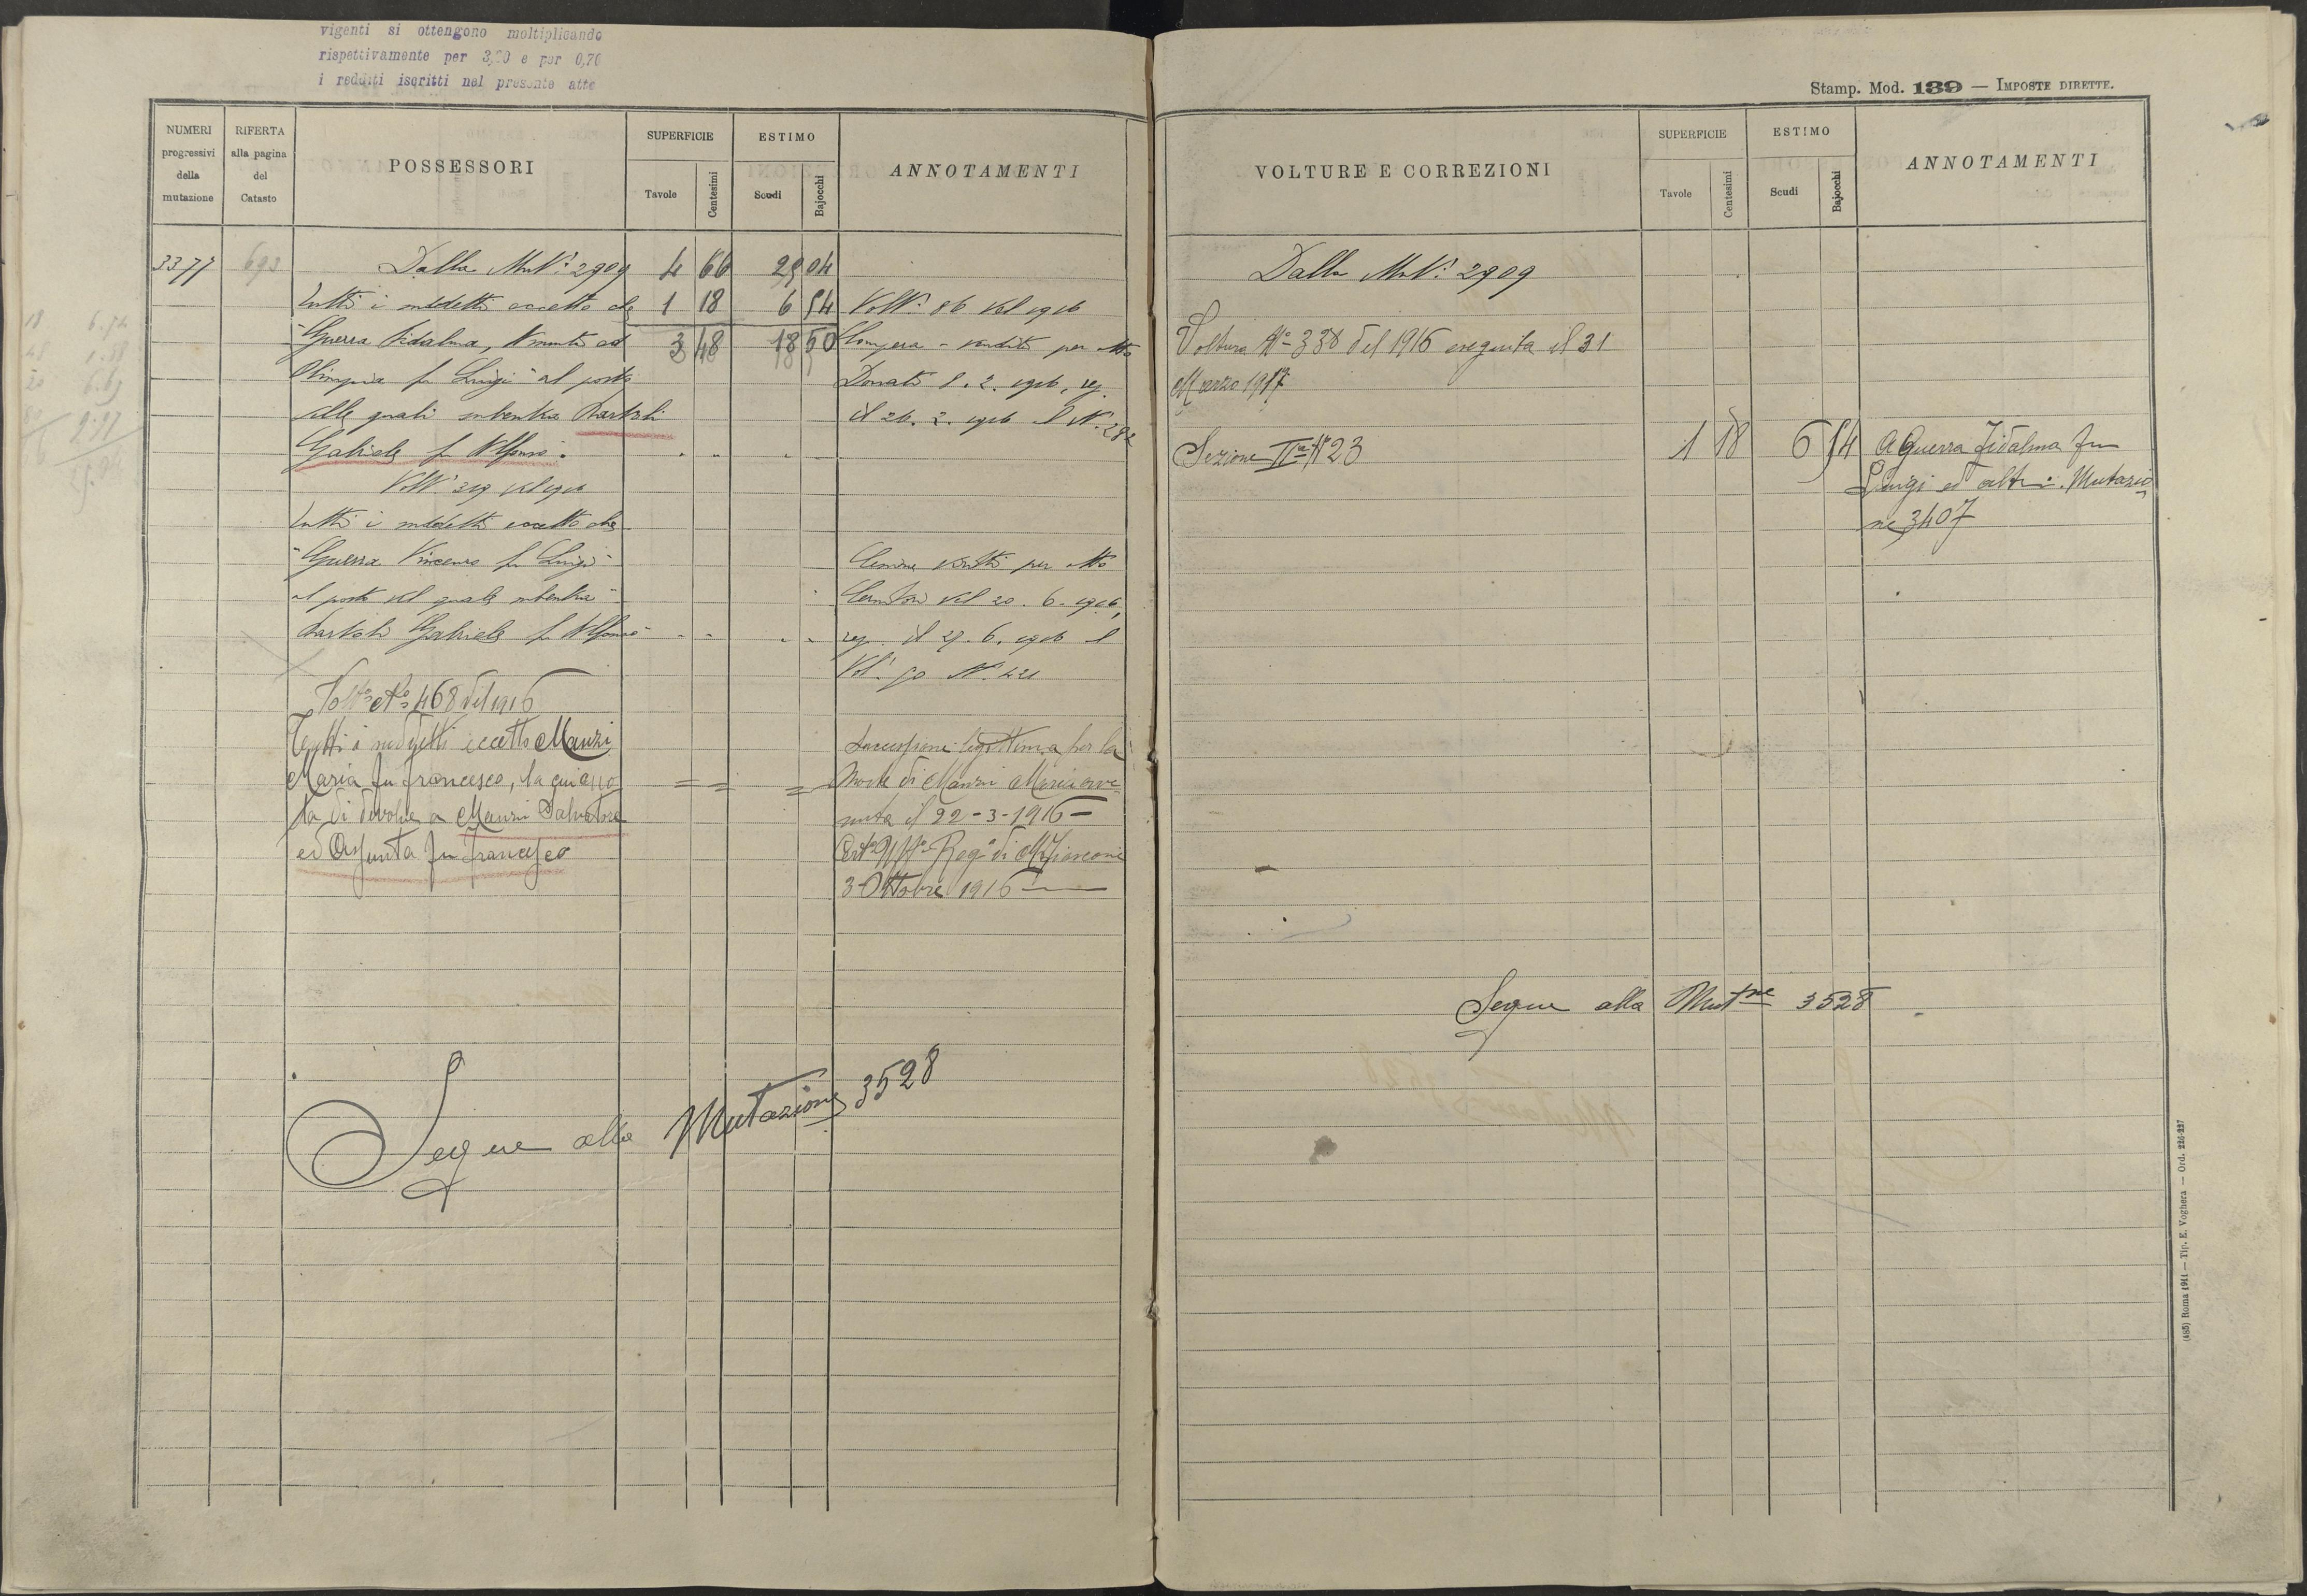 vigenti si ottengono moltiplicando
rispettivamente per 3,20 e per 0,70
i redditi iscritti nel presente atte
NUMERI
progressivi
della
mutazione
RIFERTA
alla pagina
del
Catasto
POSSESSORI
SUPERFICIE
Tavole
Centesimi
ESTIMO
Scudi
Bajocchi
ANNOTAMENTI
3377 692 Dalla Mut.ⁿᵉ 2909 4 66 04
Tutti i suddetti eccetto che 1 18 6 54 Volt.ª 86 del 1916
"Guerra Fidalma, ed 3 48 18 50 Compra-vendita per atto
Olimpia fu Luigi" al posto Donati 8.2.1916, reg.
delle quali subentra Bartoli il 26.2.1916 al N.º 282
Gabriele fu Alfonso.
Volt.ª 319 del 1916
Tutti i suddetti eccetto che
"Guerra Vincenzo fu Luigi" Cessione diritti per atto
al posto del quale subentra del 20.6.1916,
Bartoli Gabriele fu Alfonso reg. il 29.6.1916 al
Vol. 50 N.
Volt.ª N.º 468 del 1916
Tutti i suddetti eccetto Manzi Successione legittima per la
Maria fu Francesco, la cui quo morte di Manzi Maria avve
ta si devolve a Manzi Salvatore nuta il 22-3-1916 —
ed Assunta fu Francesco Reg.º di Mᵗᵉfiascone
3 Ottobre 1916
Segue alla Mutazione 3528
Stamp. Mod. 139 — IMPOSTE DIRETTE.
VOLTURE E CORREZIONI
SUPERFICIE
Tavole
Centesimi
ESTIMO
Scudi
Bajocchi
ANNOTAMENTI
Dalla Mut.ⁿᵉ 2909
Voltura N.º 338 del 1916 eseguita il 31
Marzo 1917
Sezione IIª Nº 23 1 18 6 54 A Guerra Fidalma fu
Luigi ed altri. Mutazio
ne 3407
Segue alla Mutⁿᵉ 3528
(485) Roma 1911 — Tip. E. Voghera — Ord. 226-227